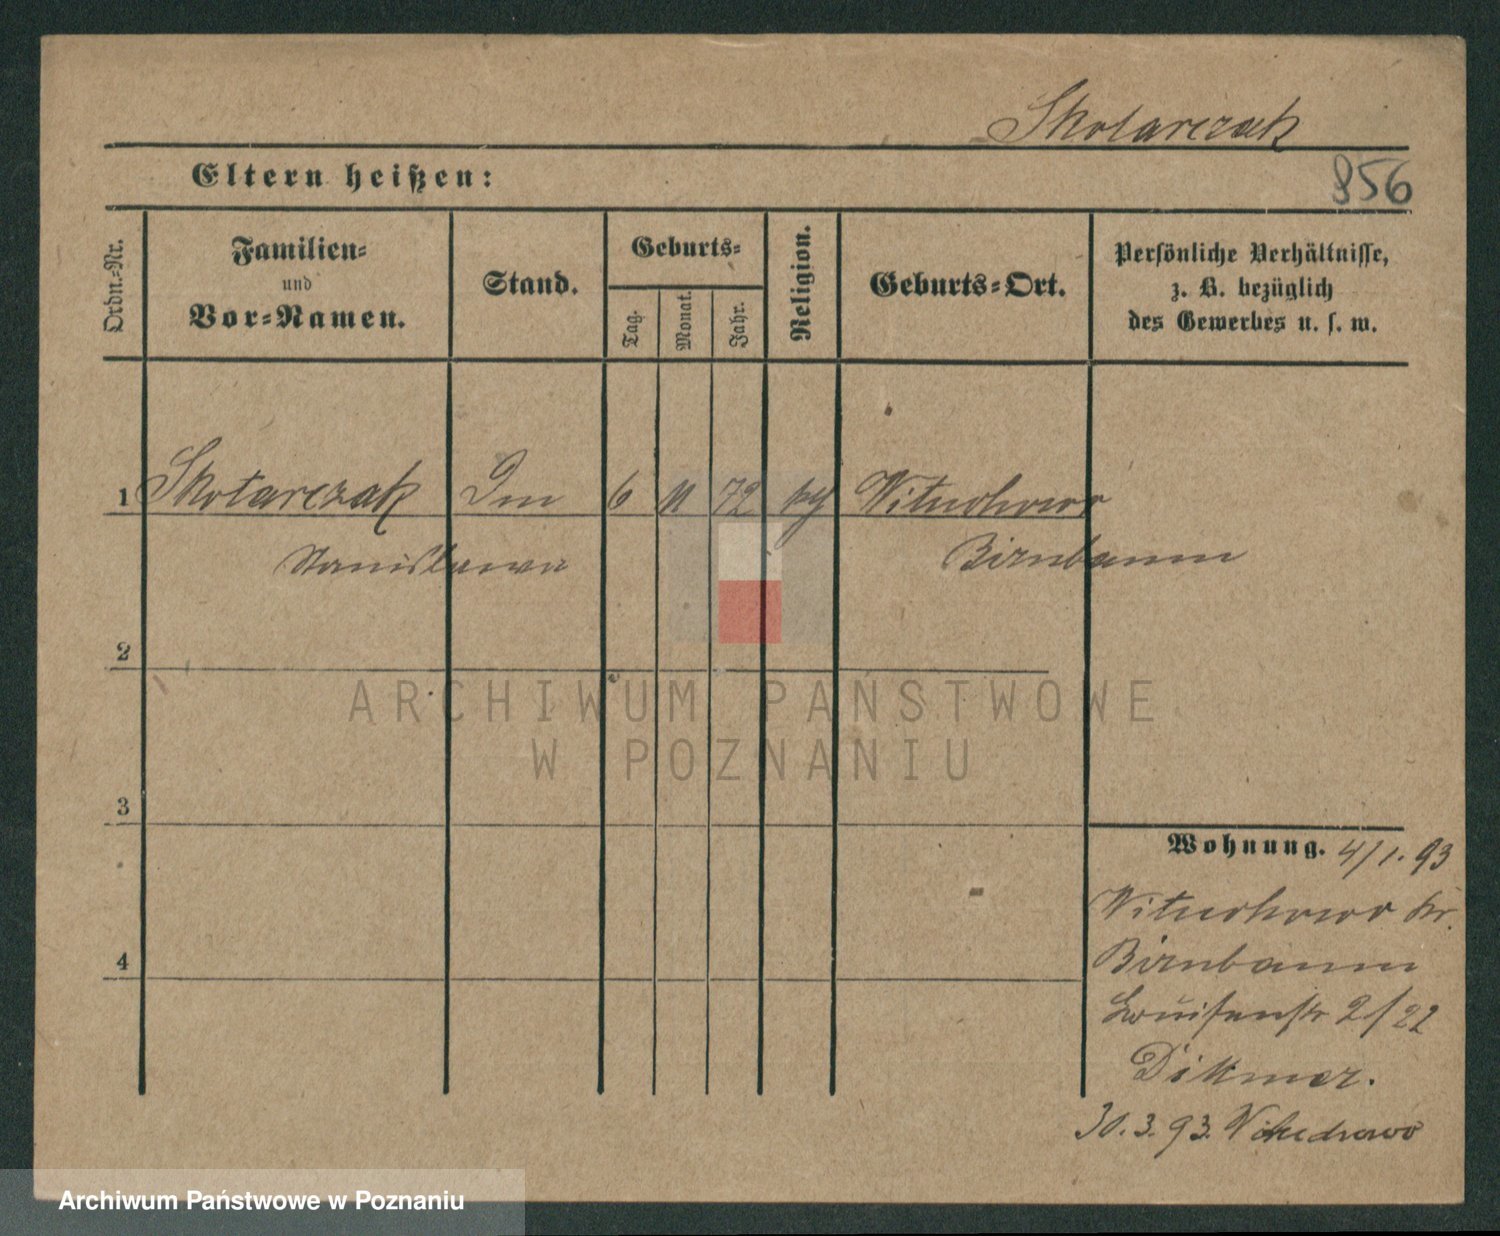 Skotarczak
Eltern heißen:
856
Ordn.-Nr.
Familien-
und
Vor-Namen.
Stand.
Geburts-
Tag.
Monat.
Jahr.
Religion.
Geburts-Ort.
Persönliche Verhältnisse,
z. B. bezüglich
des Gewerbes u. s. w.
1 Skotarczak 6 11 72 Wituchowo
Stanislawa Birnbaum
2
ARCHIWUM PAŃSTWOWE
W POZNANIU
3
Wohnung. 4/1. 93
Wituchowo Kr.
Birnbaum
4
Louisenstr 2/22
Dittmer.
30.3.93. Wituchowo
Archiwum Państwowe w Poznaniu